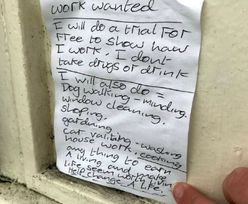 work wanted
I will do a trial FOR
free to show how
I work, I dont
take drugs or drink
I will also do =
Dog walking - minding.
window cleaning,
shoping,
gardning
car valiting - washing
house work. cooking
any thing to earn
a living and make
life seem worth living
Help change A Life.